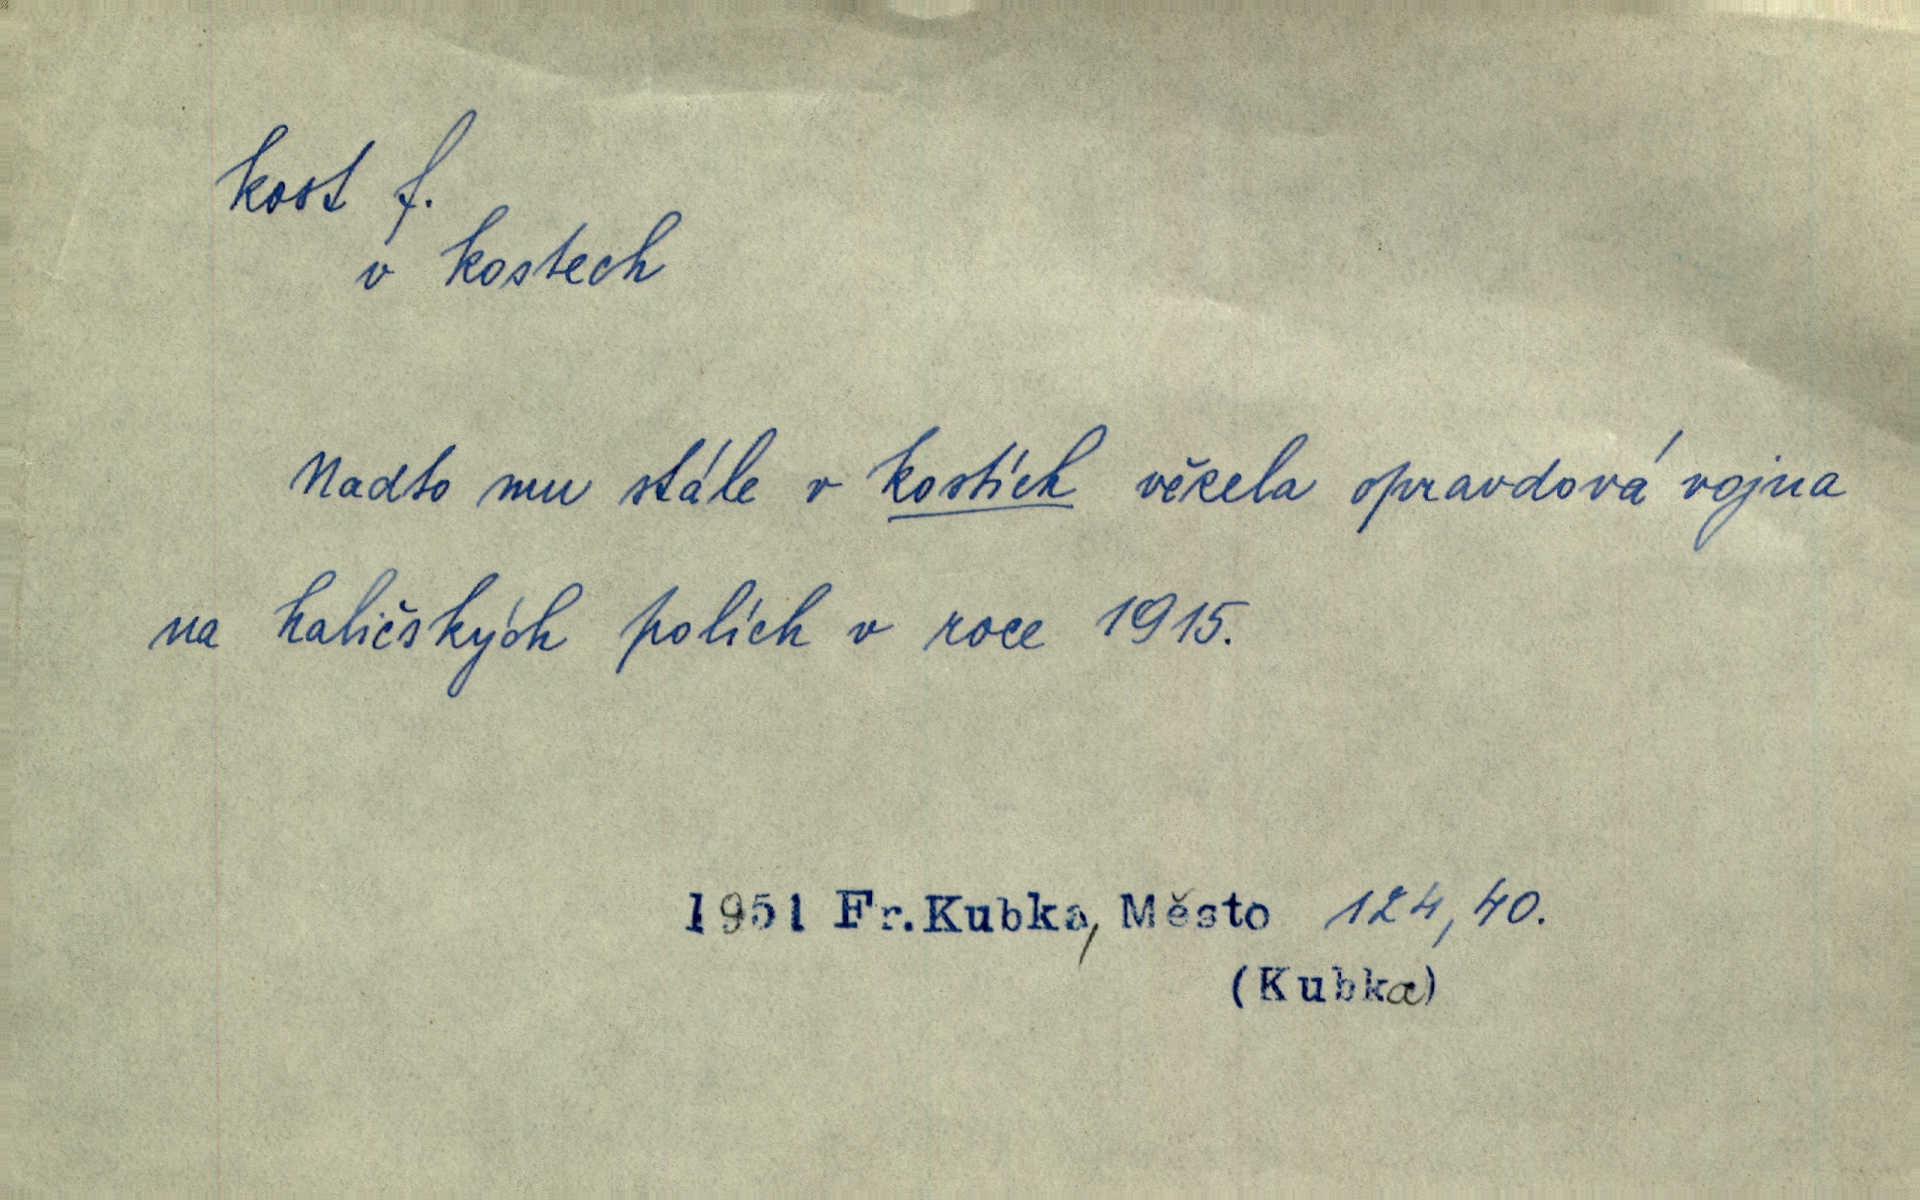 kost f.
v kostech
Nadto mu stále v kostích vězela opravdová vojna
na haličských polích v roce 1915.
1951 Fr.Kubka, Město 124, 40.
(Kubka)